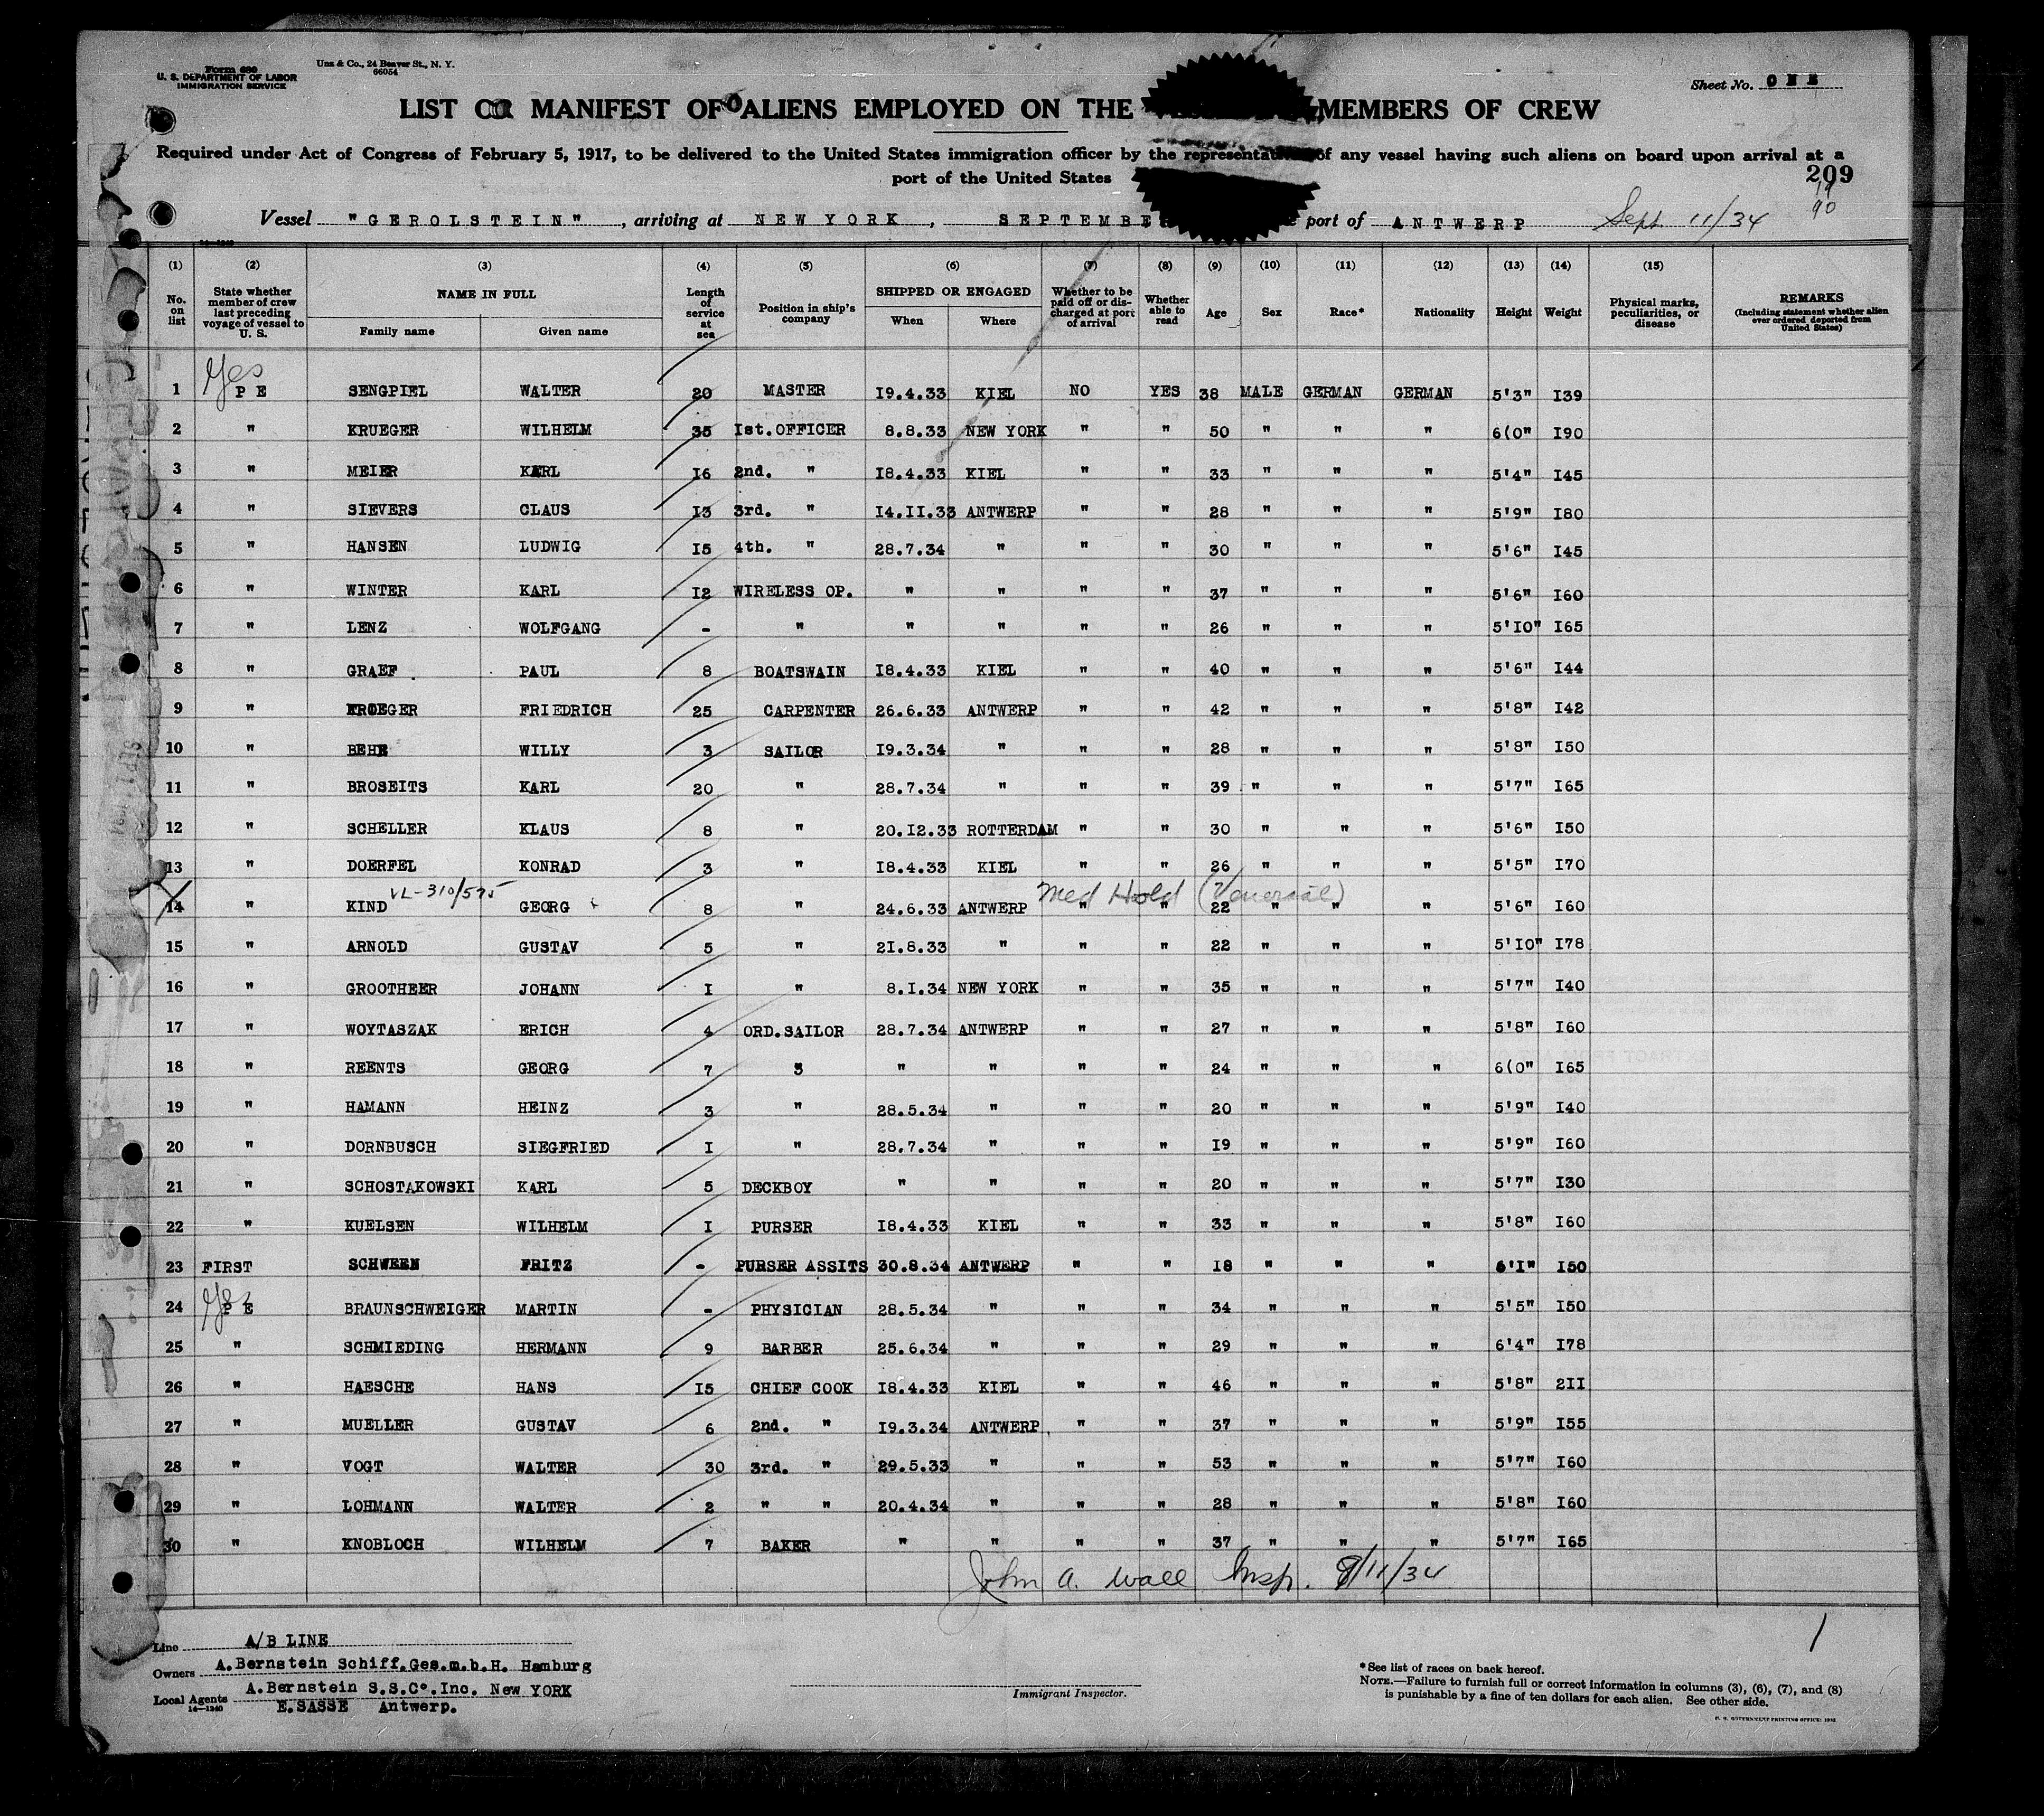 Form 680
U. S. DEPARTMENT OF LABOR
IMMIGRATION SERVICE
Unz & Co., 24 Beaver St., N. Y.
66054
Sheet No. ONE
LIST OR MANIFEST OF ALIENS EMPLOYED ON THE MEMBERS OF CREW
Required under Act of Congress of February 5, 1917, to be delivered to the United States immigration officer by the representative of any vessel having such aliens on board upon arrival at a
port of the United States
209
Vessel "GEROLSTEIN", arriving at NEW YORK, SEPTEMBE port of ANTWERP Sept. 11/34
(1) (2) (3) (4) (5) (6) (7) (8) (9) (10) (11) (12) (13) (14) (15)
No. on list State whether member of crew last preceding voyage of vessel to U. S. NAME IN FULL Family name Given name Length of service at sea Position in ship's company SHIPPED OR ENGAGED When Where Whether to be paid off or discharged at port of arrival Whether able to read Age Sex Race* Nationality Height Weight Physical marks, peculiarities, or disease REMARKS (Including statement whether alien ever ordered deported from United States)
Yes
1 P E SENGPIEL WALTER 20 MASTER I9.4.33 KIEL NO YES 38 MALE GERMAN GERMAN 5'3" I39
2 " KRUEGER WILHELM 35 Ist.OFFICER 8.8.33 NEW YORK " " 50 " " " 6(0" I90
3 " MEIER KARL I6 2nd. " I8.4.33 KIEL " " 33 " " " 5'4" I45
4 " SIEVERS CLAUS I3 3rd. " I4.II.33 ANTWERP " " 28 " " " 5'9" I80
5 " HANSEN LUDWIG I5 4th. " 28.7.34 " " " 30 " " " 5'6" I45
6 " WINTER KARL I2 WIRELESS OP. " " " " 37 " " " 5'6" I60
7 " LENZ WOLFGANG - " " " " " 26 " " " 5'IO" I65
8 " GRAEF PAUL 8 BOATSWAIN I8.4.33 KIEL " " 40 " " " 5'6" I44
9 " FRIEDRICH 25 CARPENTER 26.6.33 ANTWERP " " 42 " " " 5'8" I42
10 " BEHE WILLY 3 SAILOR I9.3.34 " " " 28 " " " 5'8" I50
11 " BROSEITS KARL 20 " 28.7.34 " " " 39 " " " 5'7" I65
12 " SCHELLER KLAUS 8 " 20.I2.33 ROTTERDAM " " 30 " " " 5'6" I50
13 " DOERFEL KONRAD 3 " I8.4.33 KIEL " " 26 " " " 5'5" I70
VL-310/575 Med Hold (Venereal)
14 " KIND GEORG 8 " 24.6.33 ANTWERP " " 22 " " " 5'6" I60
15 " ARNOLD GUSTAV 5 " 2I.8.33 " " " 22 " " " 5'IO" I78
16 " GROOTHEER JOHANN I " 8.I.34 NEW YORK " " 35 " " " 5'7" I40
17 " WOYTASZAK ERICH 4 ORD.SAILOR 28.7.34 ANTWERP " " 27 " " " 5'8" I60
18 " REENTS GEORG 7 3 " " " " 24 " " " 6(0" I65
19 " HAMANN HEINZ 3 " 28.5.34 " " " 20 " " " 5'9" I40
20 " DORNBUSCH SIEGFRIED I " 28.7.34 " " " I9 " " " 5'9" I60
21 " SCHOSTAKOWSKI KARL 5 DECKBOY " " " " 20 " " " 5'7" I30
22 " KUELSEN WILHELM I PURSER I8.4.33 KIEL " " 33 " " " 5'8" I60
23 FIRST SCHWEEN FRITZ - PURSER ASSITS 30.8.34 ANTWERP " " I8 " " " 6'I" I50
Yes
24 P E BRAUNSCHWEIGER MARTIN - PHYSICIAN 28.5.34 " " " 34 " " " 5'5" I50
25 " SCHMIEDING HERMANN 9 BARBER 25.6.34 " " " 29 " " " 6'4" I78
26 " HAESCHE HANS I5 CHIEF COOK I8.4.33 KIEL " " 46 " " " 5'8" 2II
27 " MUELLER GUSTAV 6 2nd. " I9.3.34 ANTWERP " " 37 " " " 5'9" I55
28 " VOGT WALTER 30 3rd. " 29.5.33 " " " 53 " " " 5'7" I60
29 " LOHMANN WALTER 2 " " 20.4.34 " " " 28 " " " 5'8" I60
30 " KNOBLOCH WILHELM 7 BAKER " " " " 37 " " " 5'7" I65
John A. Wall Insp. 9/11/34
1
Line A/B LINE
Owners A.Bernstein Schiff.Ges.m.b.H. Hamburg
Local Agents A.Bernstein S.S.Co.Inc. New YORK
E.SASSE Antwerp.
14—1240
Immigrant Inspector.
*See list of races on back hereof.
NOTE.—Failure to furnish full or correct information in columns (3), (6), (7), and (8)
is punishable by a fine of ten dollars for each alien. See other side.